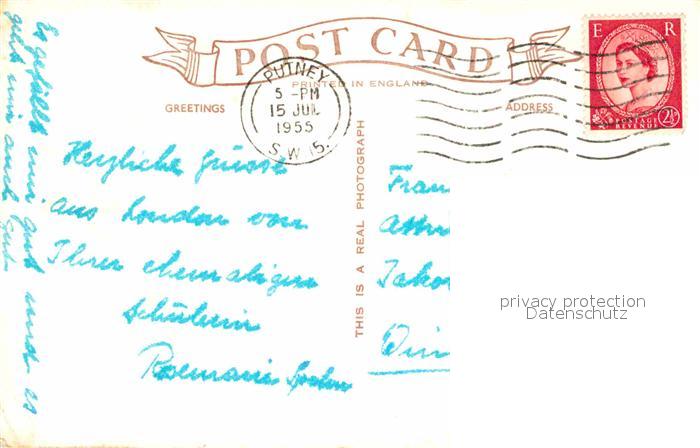 POST CARD
PRINTED IN ENGLAND
GREETINGS
ADDRESS
PUTNEY
5 - PM
15 JUL
1955
S.W.15.
E R
POSTAGE
REVENUE
2½
THIS IS A REAL PHOTOGRAPH
Herzliche Grüsse
aus London von
Ihrer ehemaligen
Schülerin
Rosemarie
Es gefällt mir gut und es
geht mir auch gut.
Frau
Jako
Win
privacy protection
Datenschutz